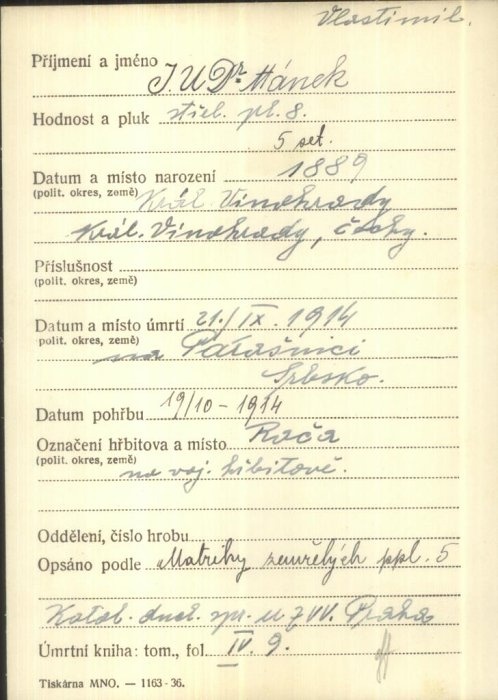 Vlastimil.
Příjmení a jméno JUDr Hánek
Hodnost a pluk střel. pl. 8.
5 set.
Datum a místo narození 1889
(polit. okres, země) Král. Vinohrady
Král. Vinohrady, Čechy.
Příslušnost
(polit. okres, země)
Datum a místo úmrtí 21./IX. 1914
(polit. okres, země) na
Srbsko.
Datum pohřbu 19/10 - 1914
Označení hřbitova a místo Rača
(polit. okres, země) na voj. hřbitově.
Oddělení, číslo hrobu
Opsáno podle Matriky zemřelých ppl. 5
Katol. duch. spr. u 7 VV. Praha
Úmrtní kniha: tom., fol. IV. 9.
Tiskárna MNO. — 1163-36.